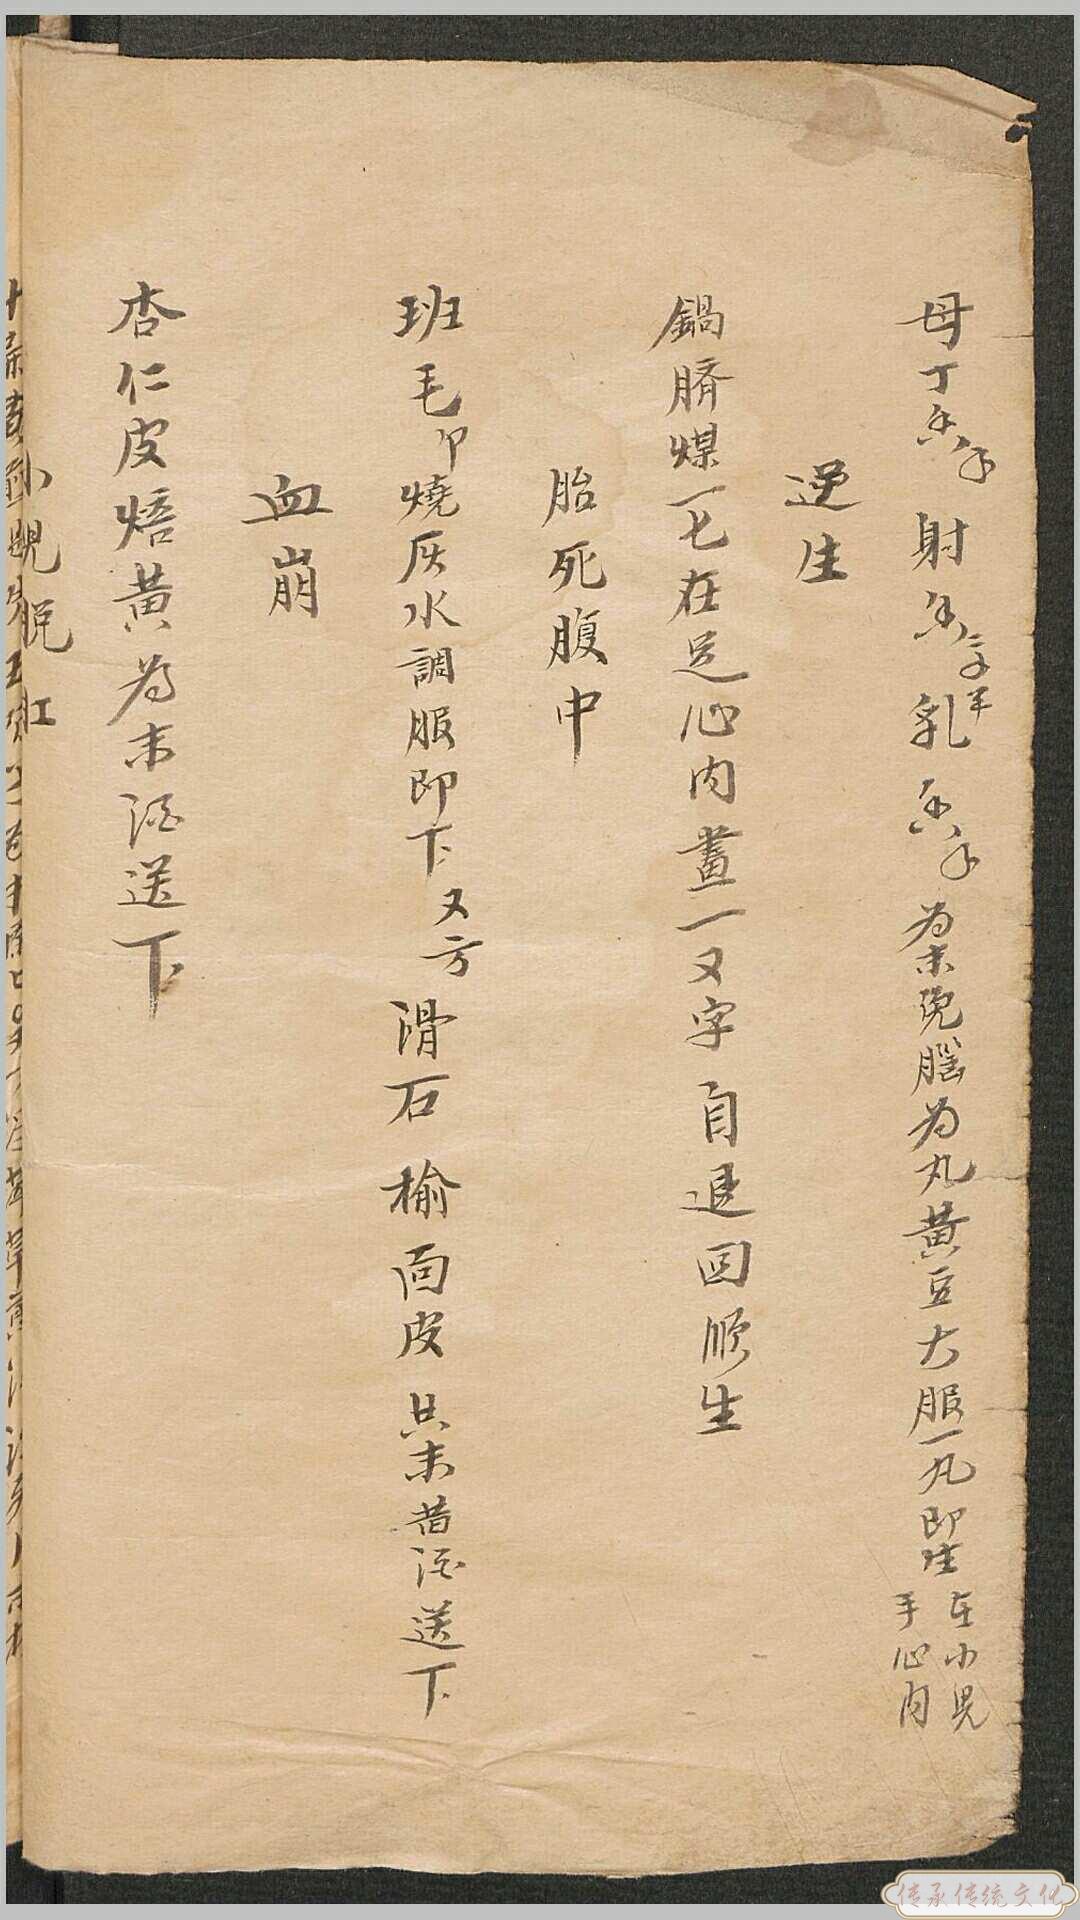 母丁香 射香 乳香 为末兔腦为丸黄豆大服一丸即生 在小児手心内
逆生
鍋臍煤一七在足心内畫一又字自退回順生
胎死腹中
班毛 燒灰水調服即下 又方 滑石 榆面皮 共末昔酒送下
血崩
杏仁皮焙黃为末酒送下
小児脱肛
传承传统文化